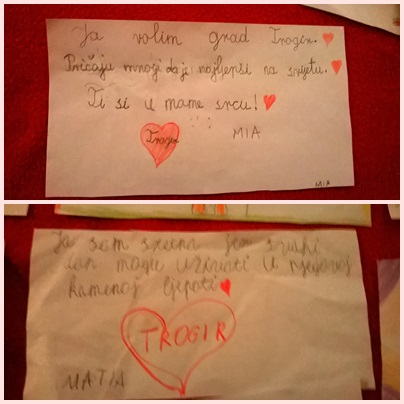 Ja volim grad Trogir.
Pričaju mnogi da je najljepši na svijetu.
Ti si u mome srcu!
Trogir
MIA
MIA
Ja sam sretna jer svaki
dan mogu uživati u njegovoj
kamenoj ljepoti
TROGIR